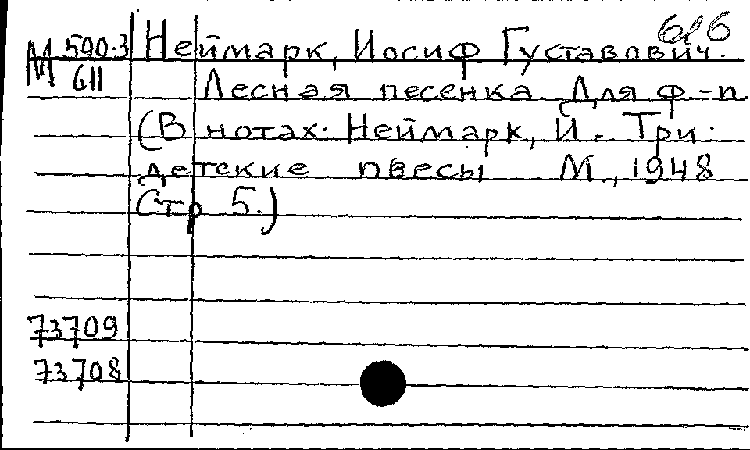 616
М 590.3 Неймарк, Иосиф Густавович.
611 Лесная песенка Для ф-п
(В нотах: Неймарк, И. Три
детские пьесы М., 1948
Стр 5.)
73709
73708